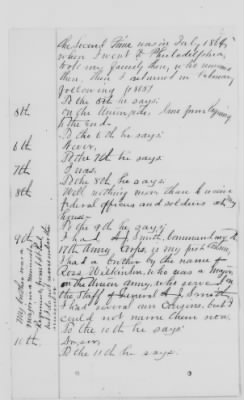 the Second Time was in July 1864,
when I went to Philadelphia,
took my family then, who remained
then, then I returned in February
following (1865)
To the 5th he says:
5th
On the Union side,, from beginning
to the end.
To the 6th he says:
6th
Never.
To the 7th he says:
7th
I was.
To the 8th he says:
8th
Well nothing more than to receive
federal officers and soldiers at my
house.
To the 9th he says:
9th
I had A J Smith, Commander of the
17th Army Corps, is my first Cousin,
I had a brother by the name of
Ross Wilkinson, who was a Major
in the Union army, who served on
the Staff of General A J Smith
I had several own Cousins, but I
could not name them now.
My brother was a
To the 10th he says:
10th
No sir,
To the 11th he says.